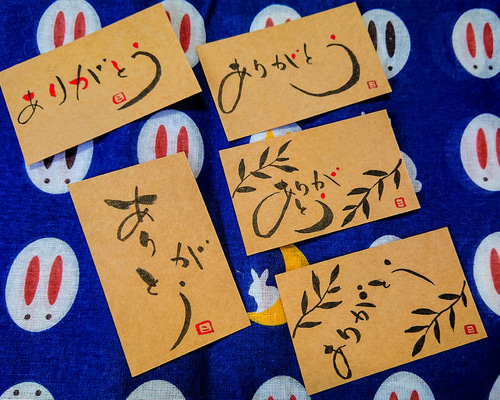 ありがとう
ありがとう
ありが
とう
ありがとう
ありがとう
ミ
ミ
ミ
ミ
ミ